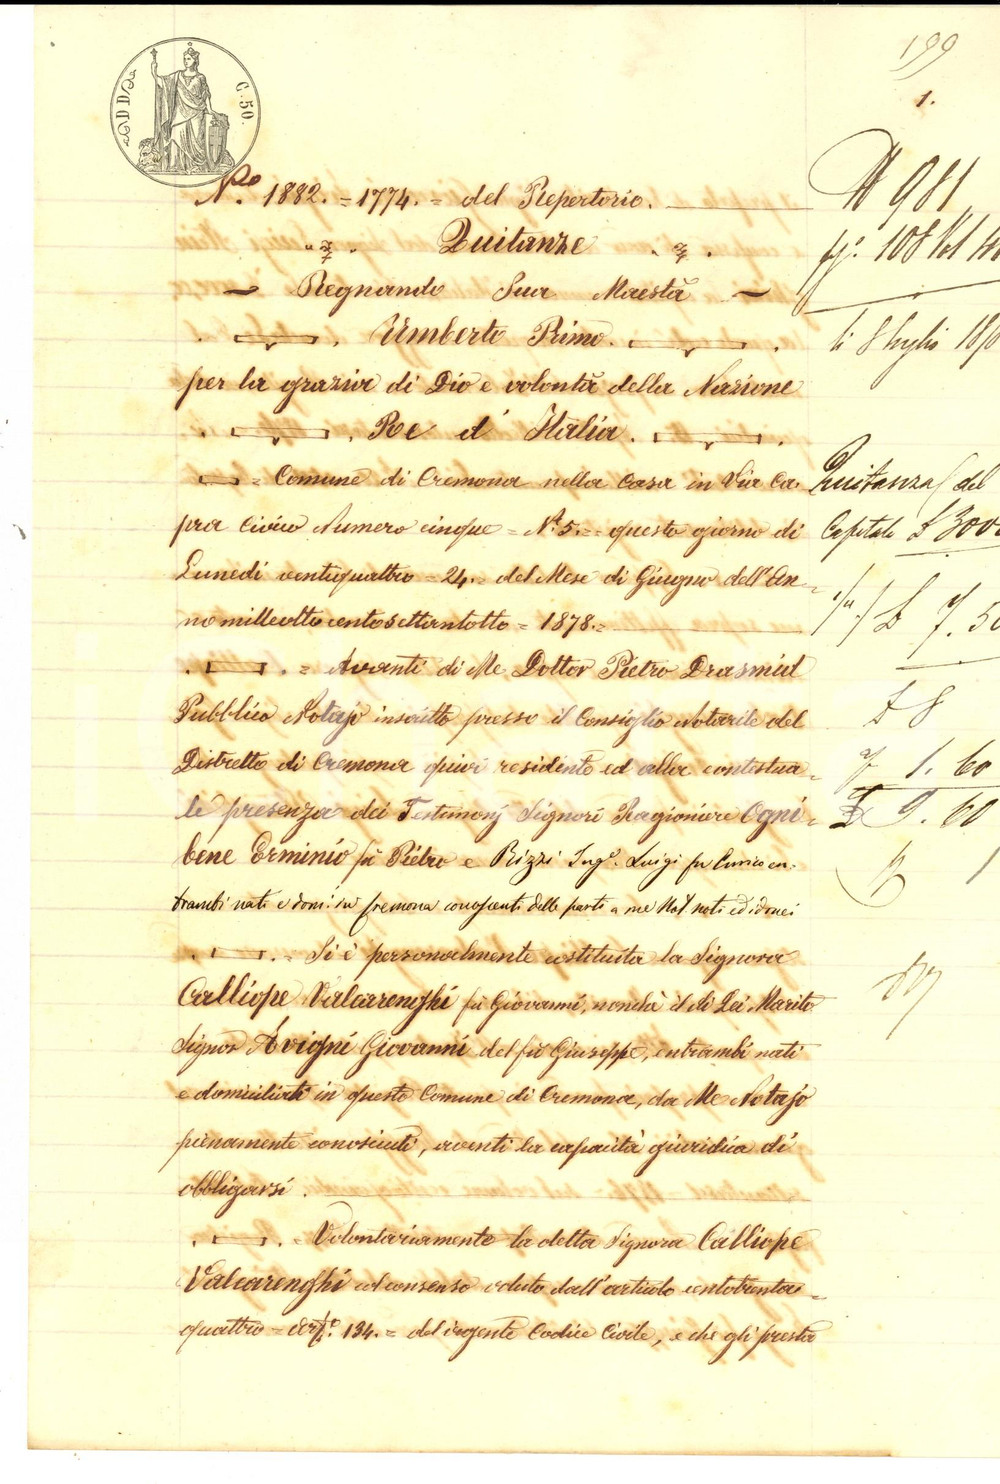 199
1.
DD
C. 50.
N.º 1882. = 1774. = del Repertorio.
Quitanze
Regnando Sua Maestà
Umberto Primo.
per la grazia di Dio e volontà della Nazione
Re d'Italia.
= Comune di Cremona nella Casa in Via Ca-
pra Civico Numero cinque = N.º 5. = questo giorno di
Lunedì ventiquattro = 24. = del Mese di Giugno dell'An=
no milleottocentosettantotto = 1878. =
= Avanti di Me Dottor Pietro
Pubblico Notajo inscritto presso il Consiglio Notarile del
Distretto di Cremona quivi residente ed alla contestua=
le presenza dei Testimonj Signori Ragioniere Ogni=
bene Erminio fu Pietro e Rizzi Ing.e Luigi fu Enrico en-
trambi nati e domi. in Cremona conoscenti delle parti a me Not. noti ed idonei
= Si è personalmente costituita la Signora
Calliope Valcarenghi fu Giovanni, nonchè il di Lei Marito
Signor Avigni Giovanni del fu Giuseppe, entrambi nati
e domiciliati in questo Comune di Cremona, da Me Notajo
pienamente conosciuti, aventi la capacità giuridica di
obbligarsi.
= Volontariamente la detta Signora Calliope
Valcarenghi col consenso voluto dall'articolo centotrenta=
quattro = 134. = del vigente Codice Civile, e che gli presta
N 981
fg.º 108 Vol
li 8 luglio 18
Quitanza del
Capitale £ 300
£ 7. 50
£ 8
1. 60
£ 9. 60